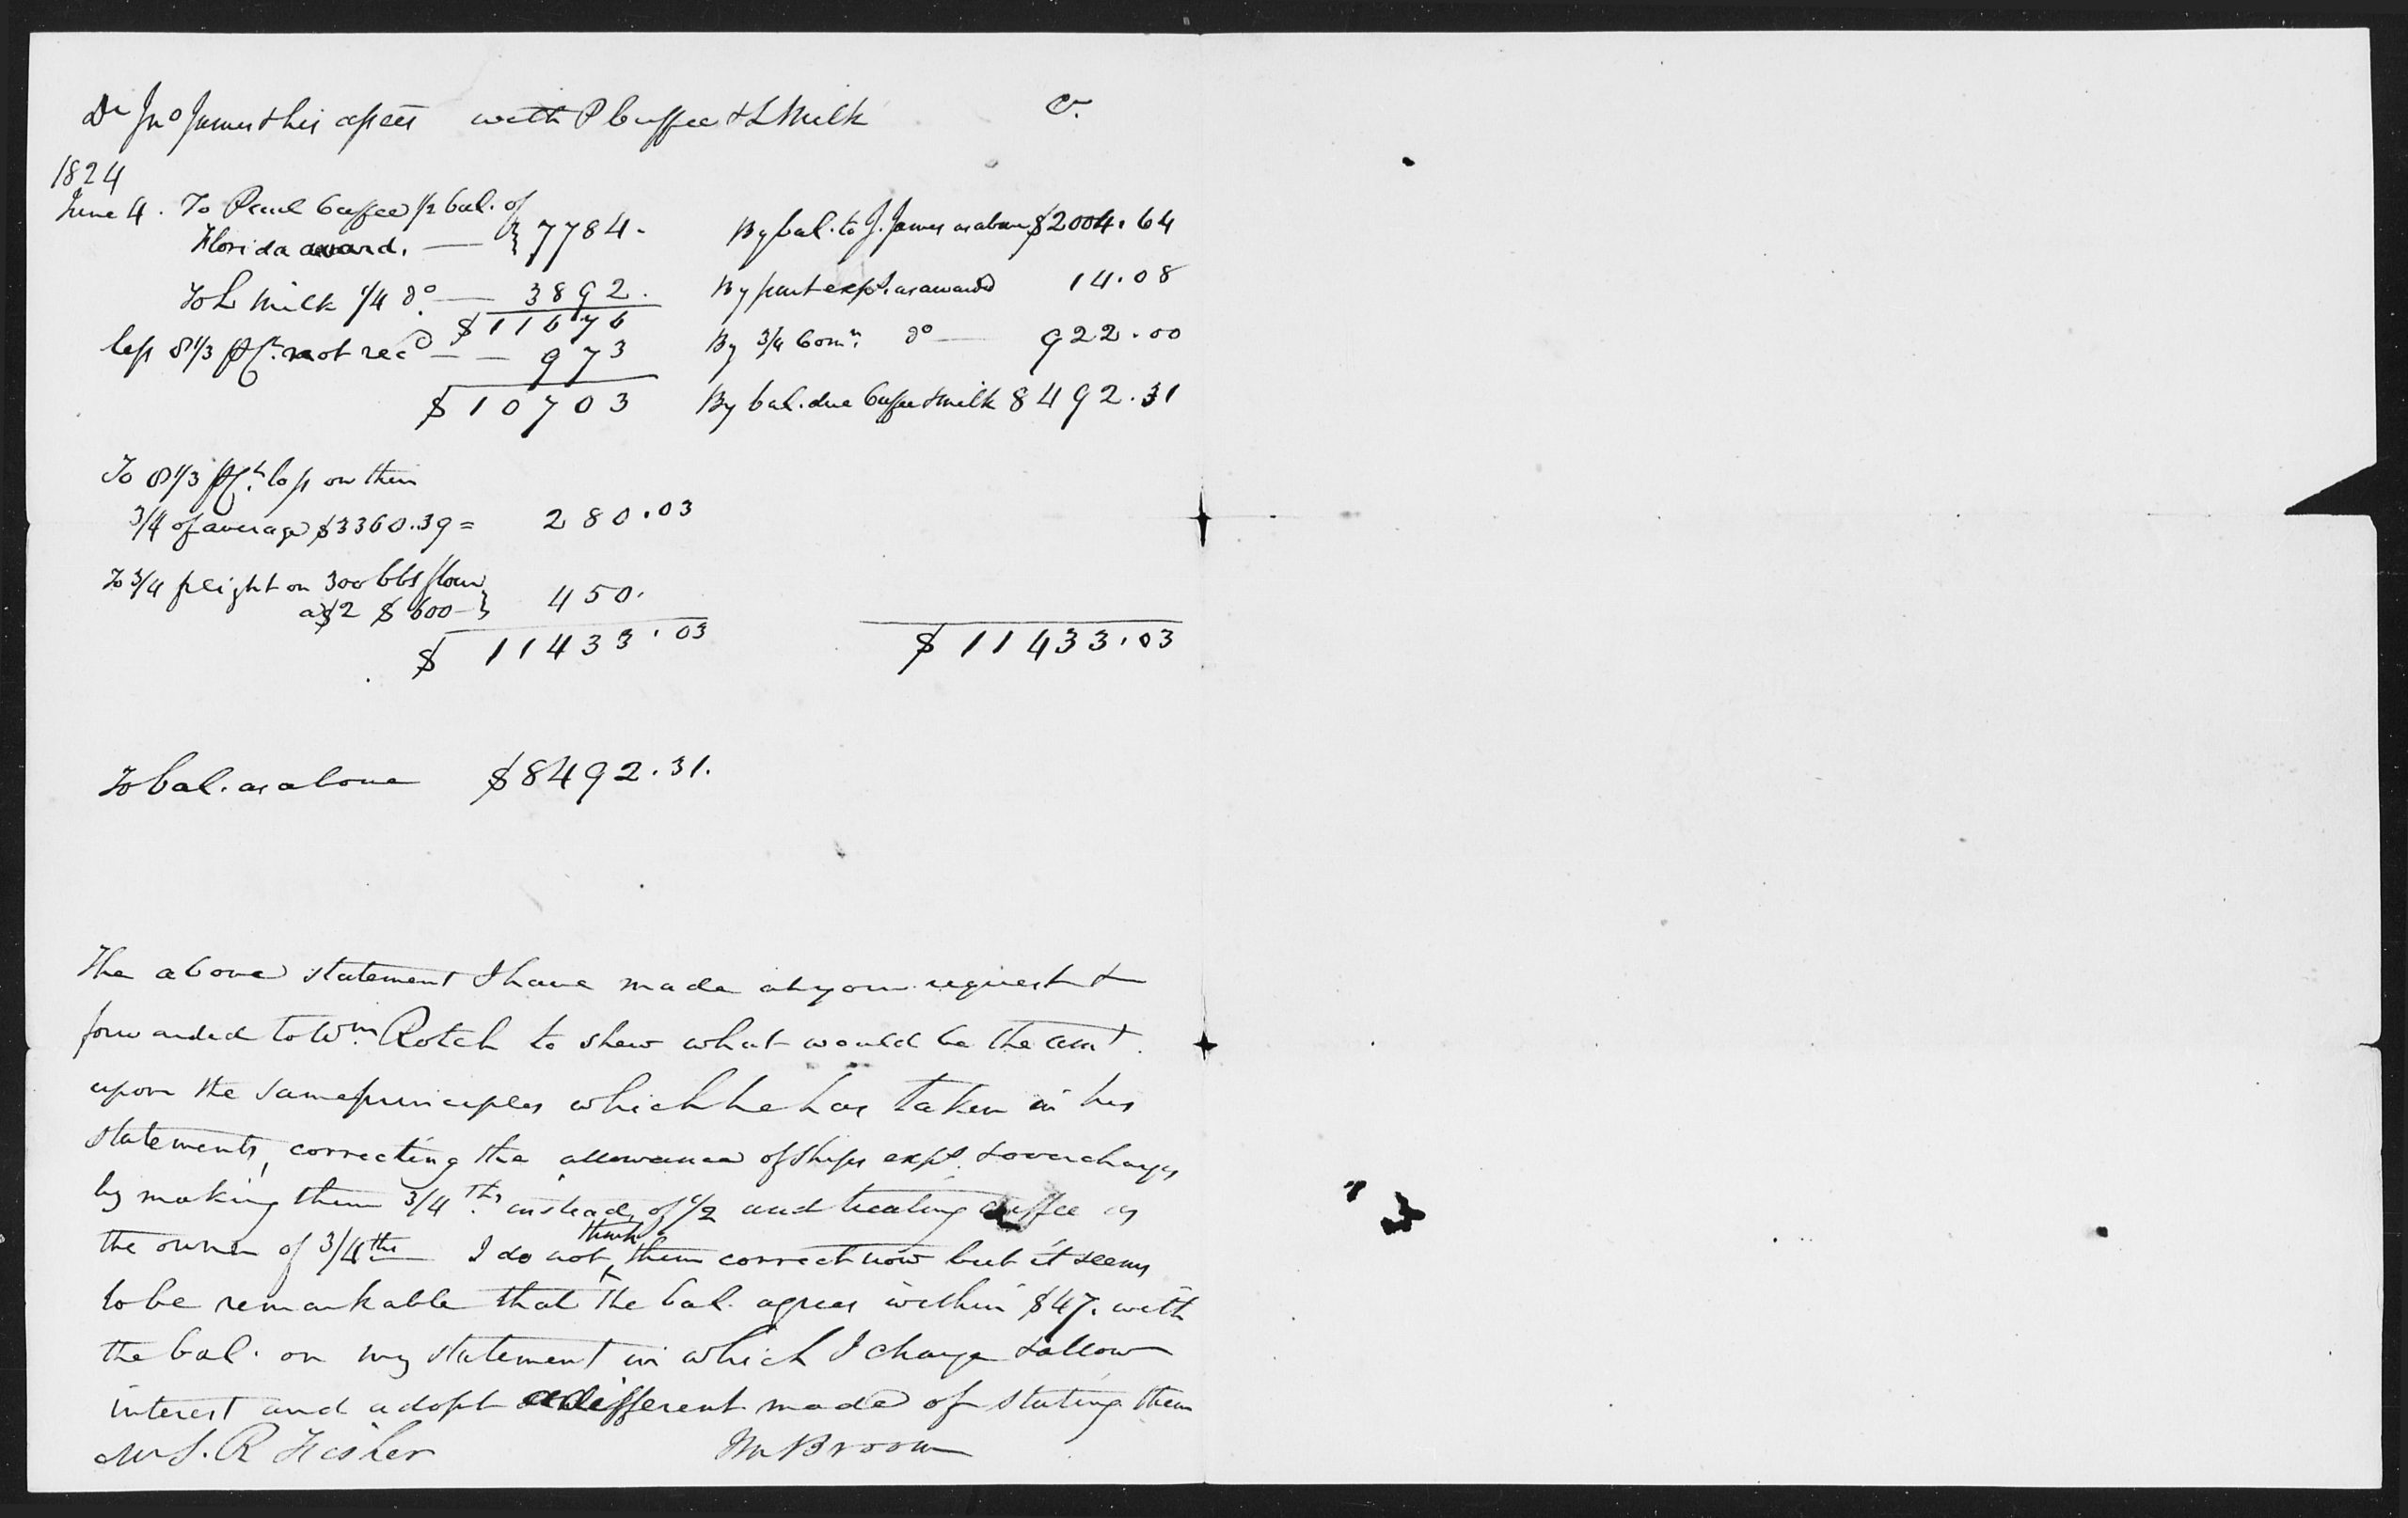 Dr Jno James & his assees with P Cuffee & L Milk Cr.
1824
June 4. To Paul Cuffee 1/2 bal. of
Florida award. — } 7784.
To L Milk 1/4 do. — 3892.
$11676
less 8 1/3 pct. not recd — — 973
$10703
To 8 1/3 pct. loss on their
3/4 of average $3360.39 = 280.03
To 3/4 freight on 300 bbls flour
a $2 $600 — } 450.
$11433.03
By bal. to J. James as above $2004.64
By part exps. as award 14.08
By 3/4 Comn. do — 922.00
By bal. due Cuffee & Milk 8492.31
$11433.03
To bal. as above $8492.31.
The above statement I have made at your request &
forwarded to Wm. Rotch to shew what would be the amt.
upon the same principles which he has taken in his
statements, correcting the allowance of ships exps. & overcharges
by making them 3/4ths. instead of 1/2 and treating Cuffee as
the owner of 3/4ths I do not think them correct now but it seems
to be remarkable that the bal. agrees within $47. with
the bal. on my statement in which I charge & allow
interest and adopt a different mode of stating them
Mr S. R Fisher Jn Broom